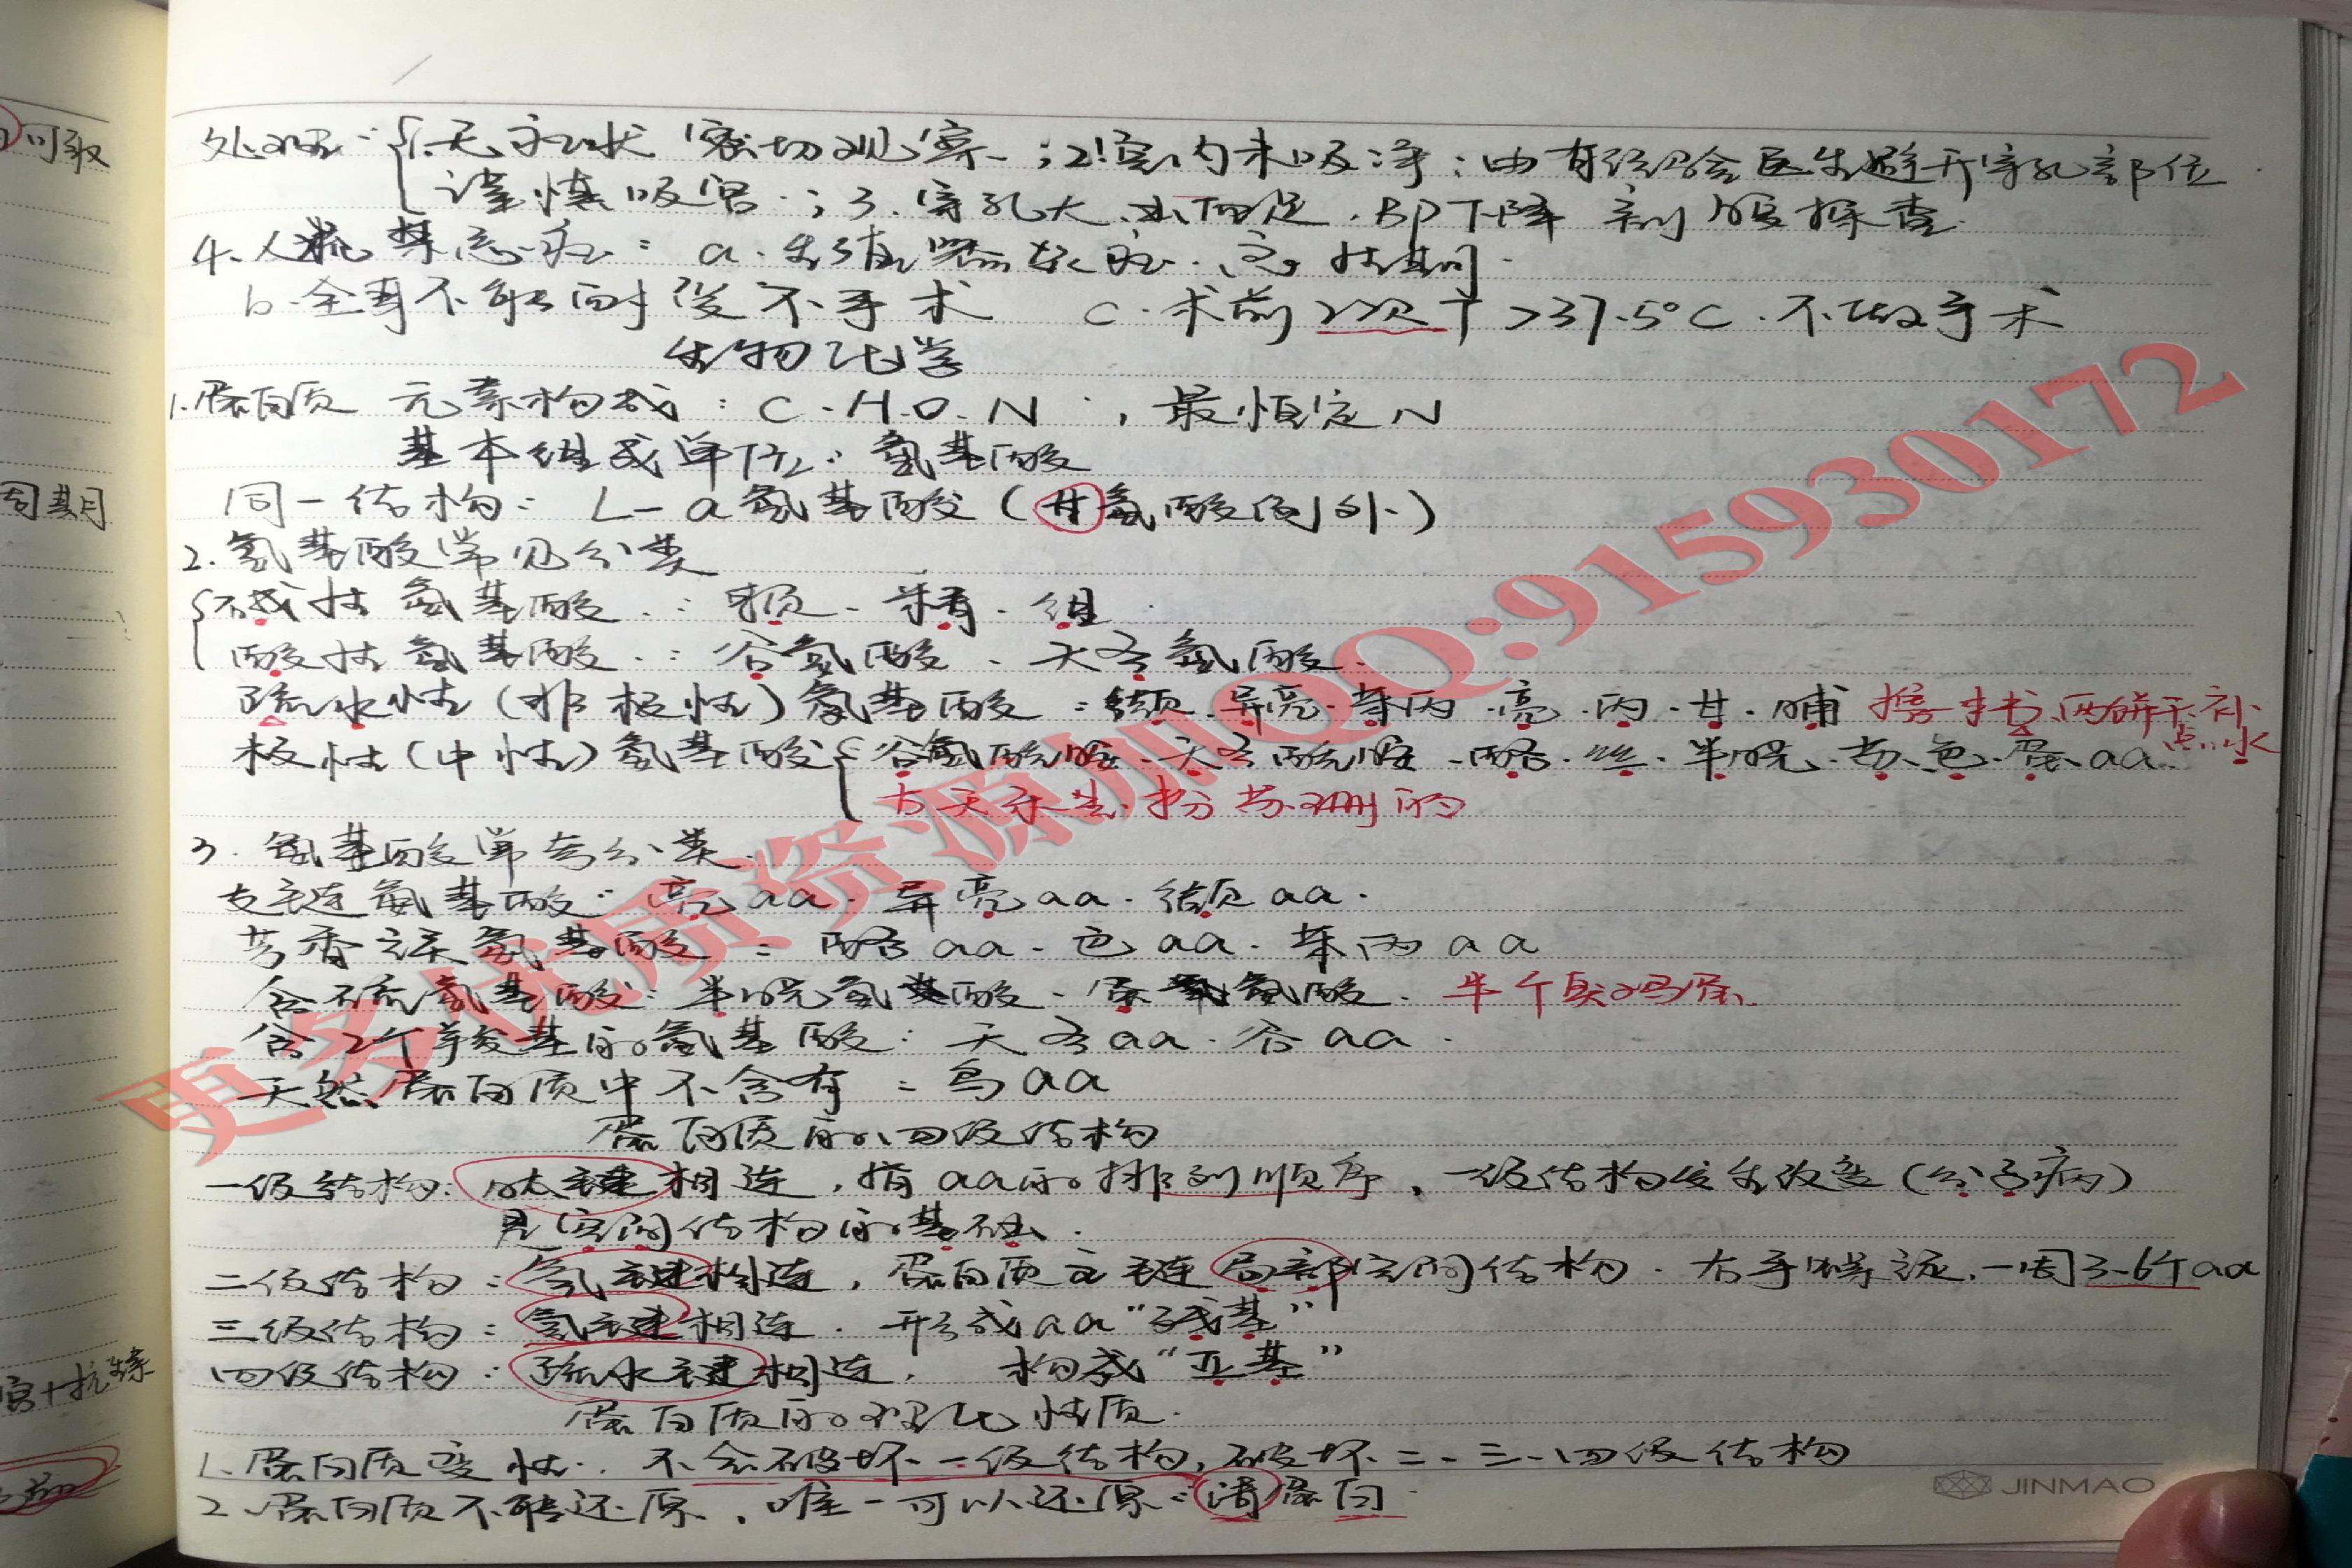 处理:{1.无症状 密切观察;2.宫内未吸净:由有经验医生避开穿孔部位
谨慎吸宫;3.穿孔大、出血多.BP下降 剖腹探查.
4.人流禁忌症:a.生殖器炎症.急性期.
b.全身不能耐受不手术 c.术前2次T>37.5°C.不做手术
生物化学
1.蛋白质 元素构成:C.H.O.N,最恒定N
基本组成单位:氨基酸
同一结构:L-a氨基酸(甘氨酸例外)
2.氨基酸常见分类
{碱性氨基酸:赖.精.组.
酸性氨基酸:谷氨酸、天冬氨酸.
疏水性(非极性)氨基酸:缬.异亮.苯丙.亮.丙.甘.脯 携 书、两饼干补
点水
极性(中性)氨基酸{谷氨酰胺.天冬酰胺.酪.丝.半胱.苏.色.蛋aa.
古天 苏 的
3.氨基酸常考分类.
支链氨基酸:亮aa.异亮aa.缬aa.
芳香族氨基酸:酪aa.色aa.苯丙aa
含硫氨基酸:半胱氨基酸.蛋氨酸. 半个臭鸡蛋.
含2个羧基的氨基酸:天冬aa.谷aa.
天然蛋白质中不含有:鸟aa
蛋白质的四级结构
一级结构:肽键相连,指aa的排列顺序,一级结构发生改变(分子病)
是空间结构的基础.
二级结构:氢键相连,蛋白质主链局部空间结构.右手螺旋.一周3.6个aa
三级结构:氢键相连.形成aa"碱基"
四级结构:疏水键相连,构成"亚基"
蛋白质的理化性质.
1.蛋白质变性.不会破坏一级结构,破坏二、三、四级结构
2.蛋白质不能还原,唯一可以还原:清蛋白
JINMAO
更多优质资源加QQ:915930172
可取
周期
宫+抗